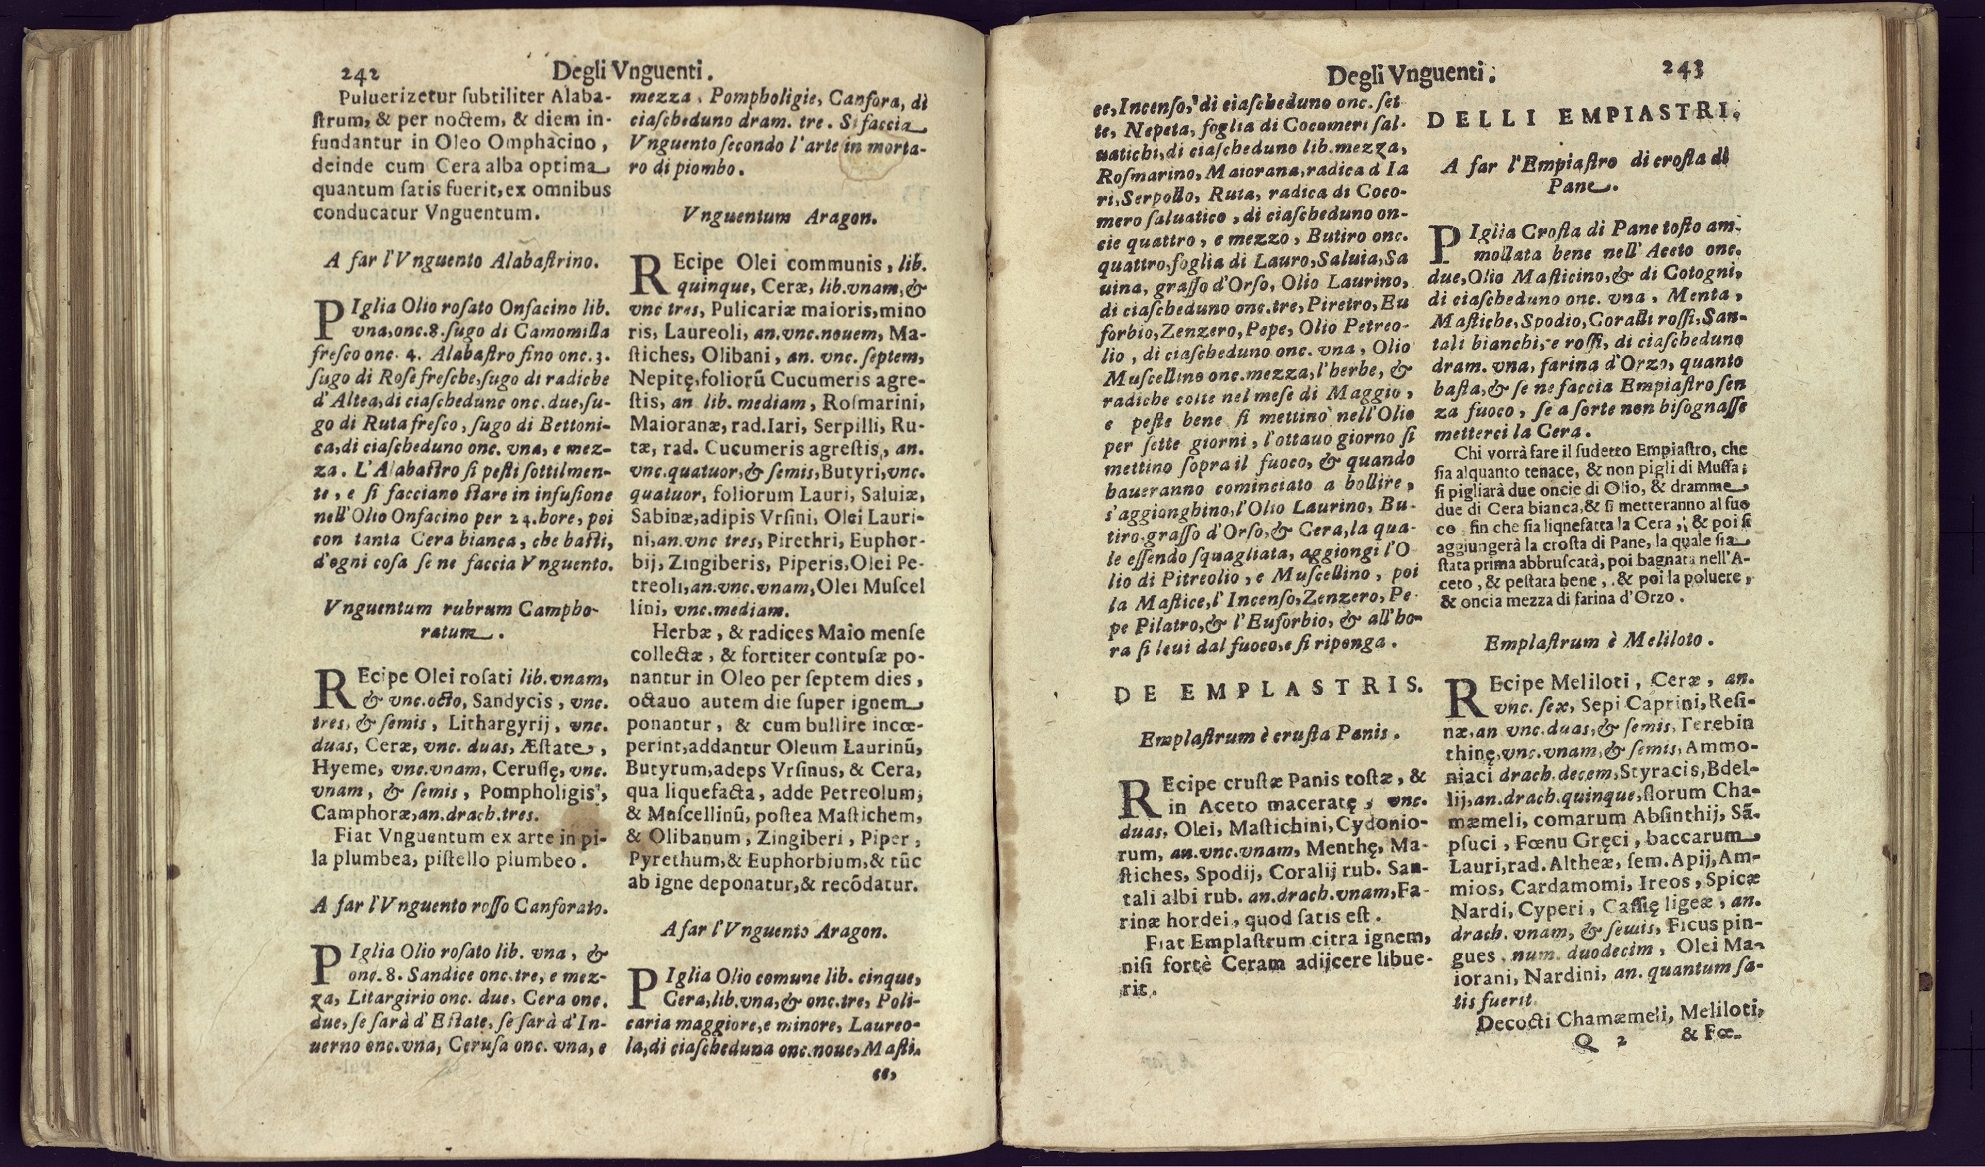 242
Degli Vnguenti.
Puluerizetur ſubtiliter Alaba-
ſtrum, & per noctem, & diem in-
fundantur in Oleo Omphacino,
deinde cum Cera alba optima
quantum ſatis fuerit, ex omnibus
conducatur Vnguentum.
A far l'Vnguento Alabaſtrino.
PIglia Olio roſato Onfacino lib.
vna, onc. 8. ſugo di Camomilla
freſco onc. 4. Alabaſtro fino onc. 3.
ſugo di Roſe freſche, ſugo di radiche
d'Altea, di ciaſcheduno onc. due, ſu-
go di Ruta freſco, ſugo di Bettoni-
ca, di ciaſcheduno onc. vna, e mez-
za. L'Alabaſtro ſi peſti ſottilmen-
te, e ſi facciano ſtare in infuſione
nell'Olio Onfacino per 24. hore, poi
con tanta Cera bianca, che baſti,
d'ogni coſa ſe ne faccia Vnguento.
Vnguentum rubrum Campho-
ratum.
REcipe Olei roſati lib. vnam,
& vnc. octo, Sandycis, vnc.
tres, & ſemis, Lithargyrij, vnc.
duas, Ceræ, vnc. duas, Æſtate,
Hyeme, vnc. vnam, Ceruſſę, vnc.
vnam, & ſemis, Pompholigis,
Camphoræ, an. drach. tres.
Fiat Vnguentum ex arte in pi-
la plumbea, piſtello plumbeo.
A far l'Vnguento roſſo Canforato.
PIglia Olio roſato lib. vna, &
onc. 8. Sandice onc. tre, e mez-
za, Litargirio onc. due, Cera onc.
due, ſe ſarà d'Eſtate, ſe ſarà d'In-
uerno onc. vna, Ceruſa onc. vna, e
mezza, Pompholigie, Canfora, di
ciaſcheduno dram. tre. Si faccia
Vnguento ſecondo l'arte in morta-
ro di piombo.
Vnguentum Aragon.
REcipe Olei communis, lib.
quinque, Ceræ, lib. vnam, &
vnc tres, Pulicariæ maioris, mino
ris, Laureoli, an. vnc. nouem, Ma-
ſtiches, Olibani, an. vnc. ſeptem,
Nepitę, foliorũ Cucumeris agre-
ſtis, an lib. mediam, Roſmarini,
Maioranæ, rad. Iari, Serpilli, Ru-
tæ, rad. Cucumeris agreſtis, an.
vnc. quatuor, & ſemis, Butyri, vnc.
quatuor, foliorum Lauri, Saluiæ,
Sabinæ, adipis Vrſini, Olei Lauri-
ni, an. vnc tres, Pirethri, Euphor-
bij, Zingiberis, Piperis, Olei Pe-
treoli, an. vnc. vnam, Olei Muſcel
lini, vnc. mediam.
Herbæ, & radices Maio menſe
collectæ, & fortiter contuſæ po-
nantur in Oleo per ſeptem dies,
octauo autem die ſuper ignem
ponantur, & cum bullire incœ-
perint, addantur Oleum Laurinũ,
Butyrum, adeps Vrſinus, & Cera,
qua liquefacta, adde Petreolum,
& Moſcellinũ, poſtea Maſtichem,
& Olibanum, Zingiberi, Piper,
Pyrethum, & Euphorbium, & tũc
ab igne deponatur, & recõdatur.
A far l'Vnguento Aragon.
PIglia Olio comune lib. cinque,
Cera, lib. vna, & onc. tre, Poli-
caria maggiore, e minore, Laureo-
la, di ciaſcheduna onc. noue, Maſti-
ce,
Degli Vnguenti.
243
ce, Incenſo, di ciaſcheduno onc. ſet
te, Nepeta, foglia di Cocomeri ſal-
uatichi, di ciaſcheduno lib. mezza,
Roſmarino, Maiorana, radica d Ia
ri, Serpollo, Ruta, radica di Coco-
mero ſaluatico, di ciaſcheduno on-
cie quattro, e mezzo, Butiro onc.
quattro, foglia di Lauro, Saluia, Sa
uina, graſſo d'Orſo, Olio Laurino,
di ciaſcheduno onc. tre, Piretro, Eu
forbio, Zenzero, Pepe, Olio Petreo-
lio, di ciaſcheduno onc. vna, Olio
Muſcellino onc. mezza, l'herbe, &
radiche colte nel meſe di Maggio,
e peſte bene ſi mettino nell'Olio
per ſette giorni, l'ottauo giorno ſi
mettino ſopra il fuoco, & quando
haueranno cominciato a bollire,
s'aggionghino, l'Olio Laurino, Bu-
tiro, graſſo d'Orſo, & Cera, la qua-
le eſſendo ſquagliata, aggiongi l'O
lio di Pitreolio, e Muſcellino, poi
la Maſtice, l'Incenſo, Zenzero, Pe-
pe Pilatro, & l'Euforbio, & all'ho-
ra ſi leui dal fuoco, e ſi riponga.
DE EMPLASTRIS.
Emplaſtrum è cruſta Panis.
REcipe cruſtæ Panis toſtæ, &
in Aceto maceratę, vnc.
duas, Olei, Maſtichini, Cydonio-
rum, an. vnc. vnam, Menthę, Ma-
ſtiches, Spodij, Coralij rub. San-
tali albi rub. an. drach. vnam, Fa-
rinæ hordei, quod ſatis eſt.
Fiat Emplaſtrum citra ignem,
niſi fortè Ceram adijcere libue-
rit.
DELLI EMPIASTRI.
A far l'Empiaſtro di croſta di
Pane.
PIglia Croſta di Pane toſto am-
mollata bene nell'Aceto onc.
due, Olio Maſticino, & di Cotogni,
di ciaſcheduno onc. vna, Menta,
Maſtiche, Spodio, Coralli roſſi, San-
tali bianchi, e roſſi, di ciaſcheduno
dram. vna, farina d'Orzo, quanto
baſta, & ſe ne faccia Empiaſtro ſen
za fuoco, ſe a ſorte non biſognaſſe
metterci la Cera.
Chi vorrà fare il ſudetto Empiaſtro, che
ſia alquanto tenace, & non pigli di Muffa;
ſi pigliarà due oncie di Olio, & dramme
due di Cera bianca, & ſi metteranno al fuo
co fin che ſia liquefatta la Cera, & poi ſi
aggiungerà la croſta di Pane, la quale ſia
ſtata prima abbruſcata, poi bagnata nell'A-
ceto, & peſtata bene, & poi la poluere,
& oncia mezza di farina d'Orzo.
Emplaſtrum è Meliloto.
REcipe Meliloti, Ceræ, an.
vnc. ſex, Sepi Caprini, Reſi-
næ, an vnc. duas, & ſemis, Terebin
thinę, vnc. vnam, & ſemis, Ammo-
niaci drach. decem, Styracis, Bdel-
lij, an. drach. quinque, florum Cha-
mæmeli, comarum Abſinthij, Sã-
pſuci, Fœnu Gręci, baccarum
Lauri, rad. Altheæ, ſem. Apij, Am-
mios, Cardamomi, Ireos, Spicæ
Nardi, Cyperi, Caſſię ligeæ, an.
drach. vnam, & ſemis, Ficus pin-
gues, num. duodecim, Olei Ma-
iorani, Nardini, an. quantum ſa-
tis fuerit.
Decocti Chamæmeli, Meliloti,
Q 2
& Fœ-